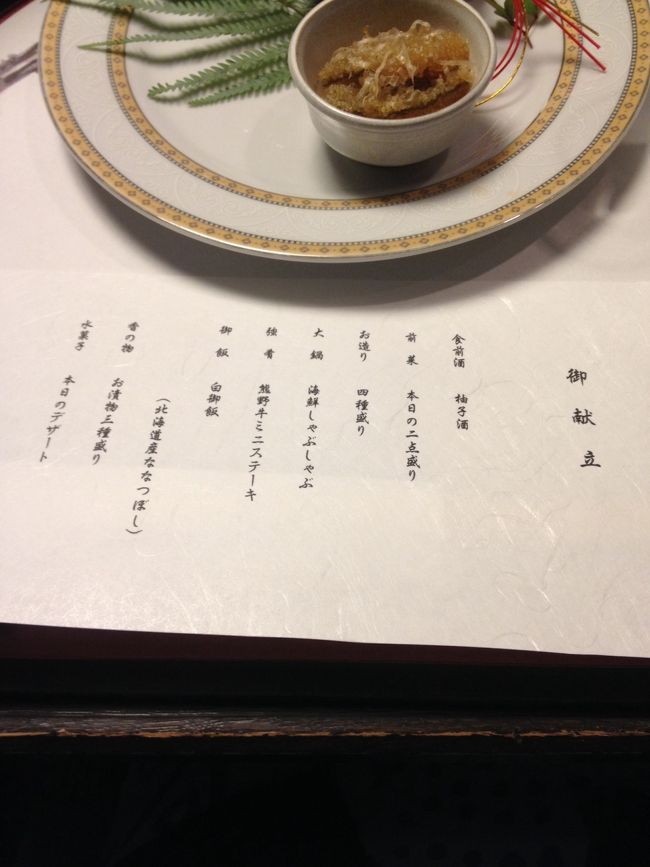 御献立
食前酒　柚子酒
前菜　本日の二点盛り
お造り　四種盛り
大鍋　海鮮しゃぶしゃぶ
強肴　熊野牛ミニステーキ
御飯　白御飯
（北海道産ななつぼし）
香の物　お漬物三種盛り
水菓子　本日のデザート